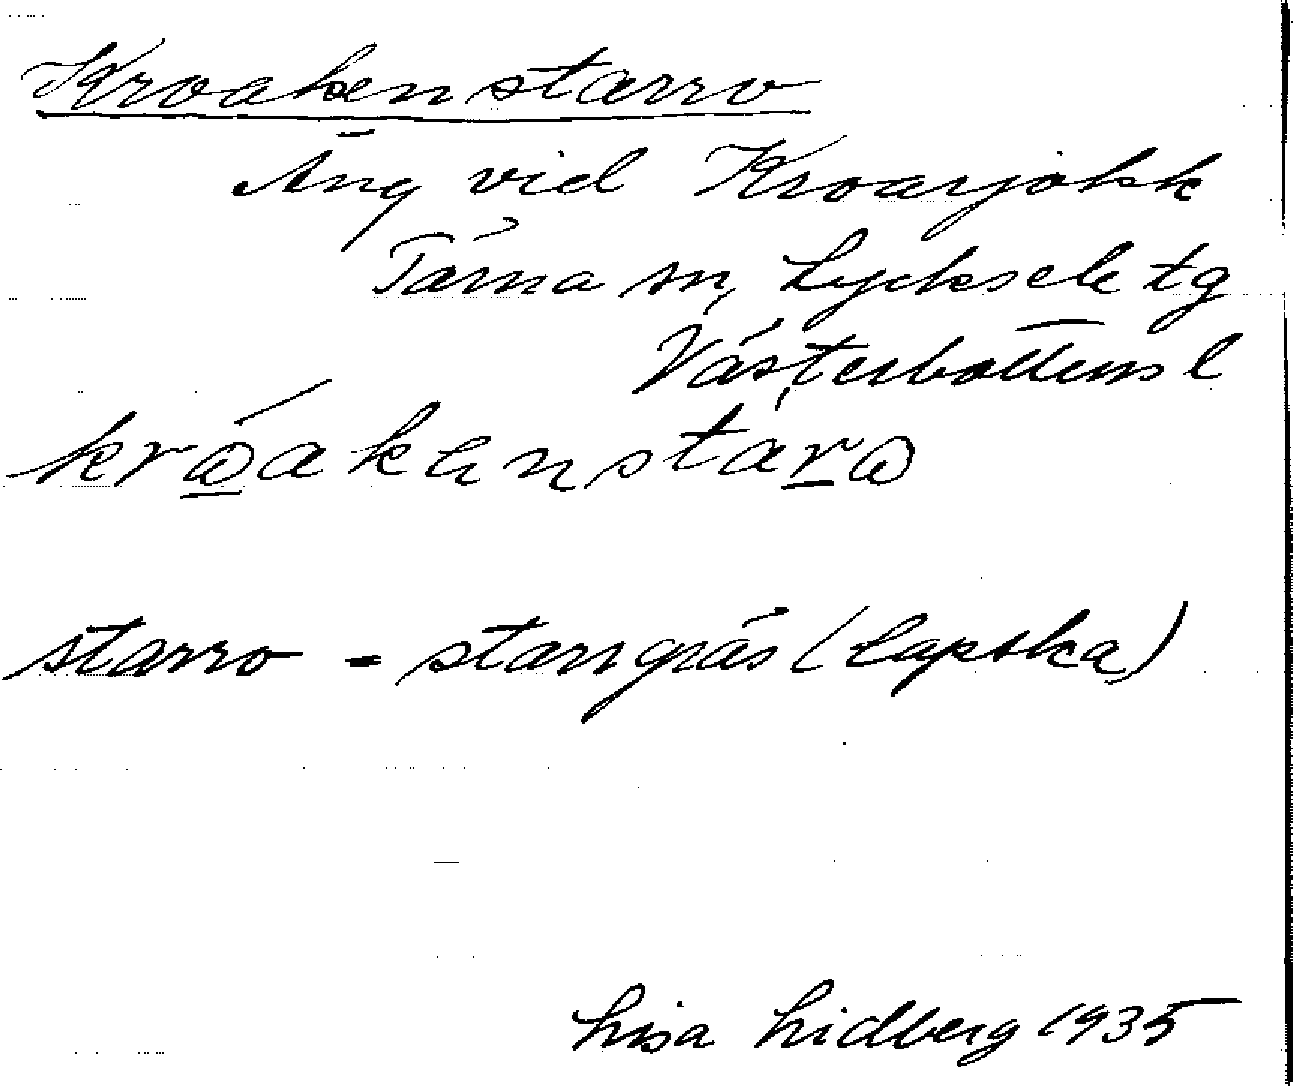 Kroakenstarro
Äng vid Kroarjokk
Tärna sn, Lycksele tg
Västerbottens l
starro = starrgräs (lapska)
Lisa Lidberg 1935